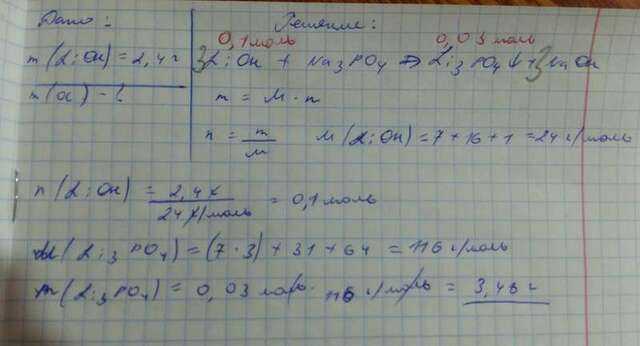 Дано: Решение:
0,1 моль 0,03 моль
m(LiOH) = 2,4 г 3LiOH + Na₃PO₄ → Li₃PO₄↓ + 3NaOH
m(ос) - ? m = M · n
n = m/M M(LiOH) = 7 + 16 + 1 = 24 г/моль
n(LiOH) = 2,4 г / 24 г/моль = 0,1 моль
M(Li₃PO₄) = (7·3) + 31 + 64 = 116 г/моль
m(Li₃PO₄) = 0,03 моль · 116 г/моль = 3,48 г